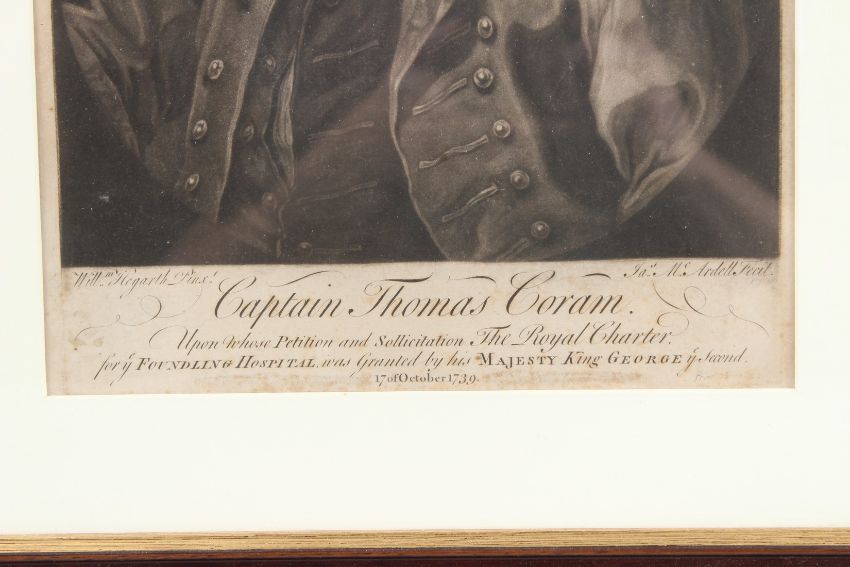 Will.m Hogarth Pinx.t
Ja.s Mc Ardell Fecit.
Captain Thomas Coram.
Upon whose Petition and Sollicitation The Royal Charter,
for ẏ FOUNDLING HOSPITAL, was Granted by his MAJESTY King GEORGE ẏ Second.
17 of October 1739.